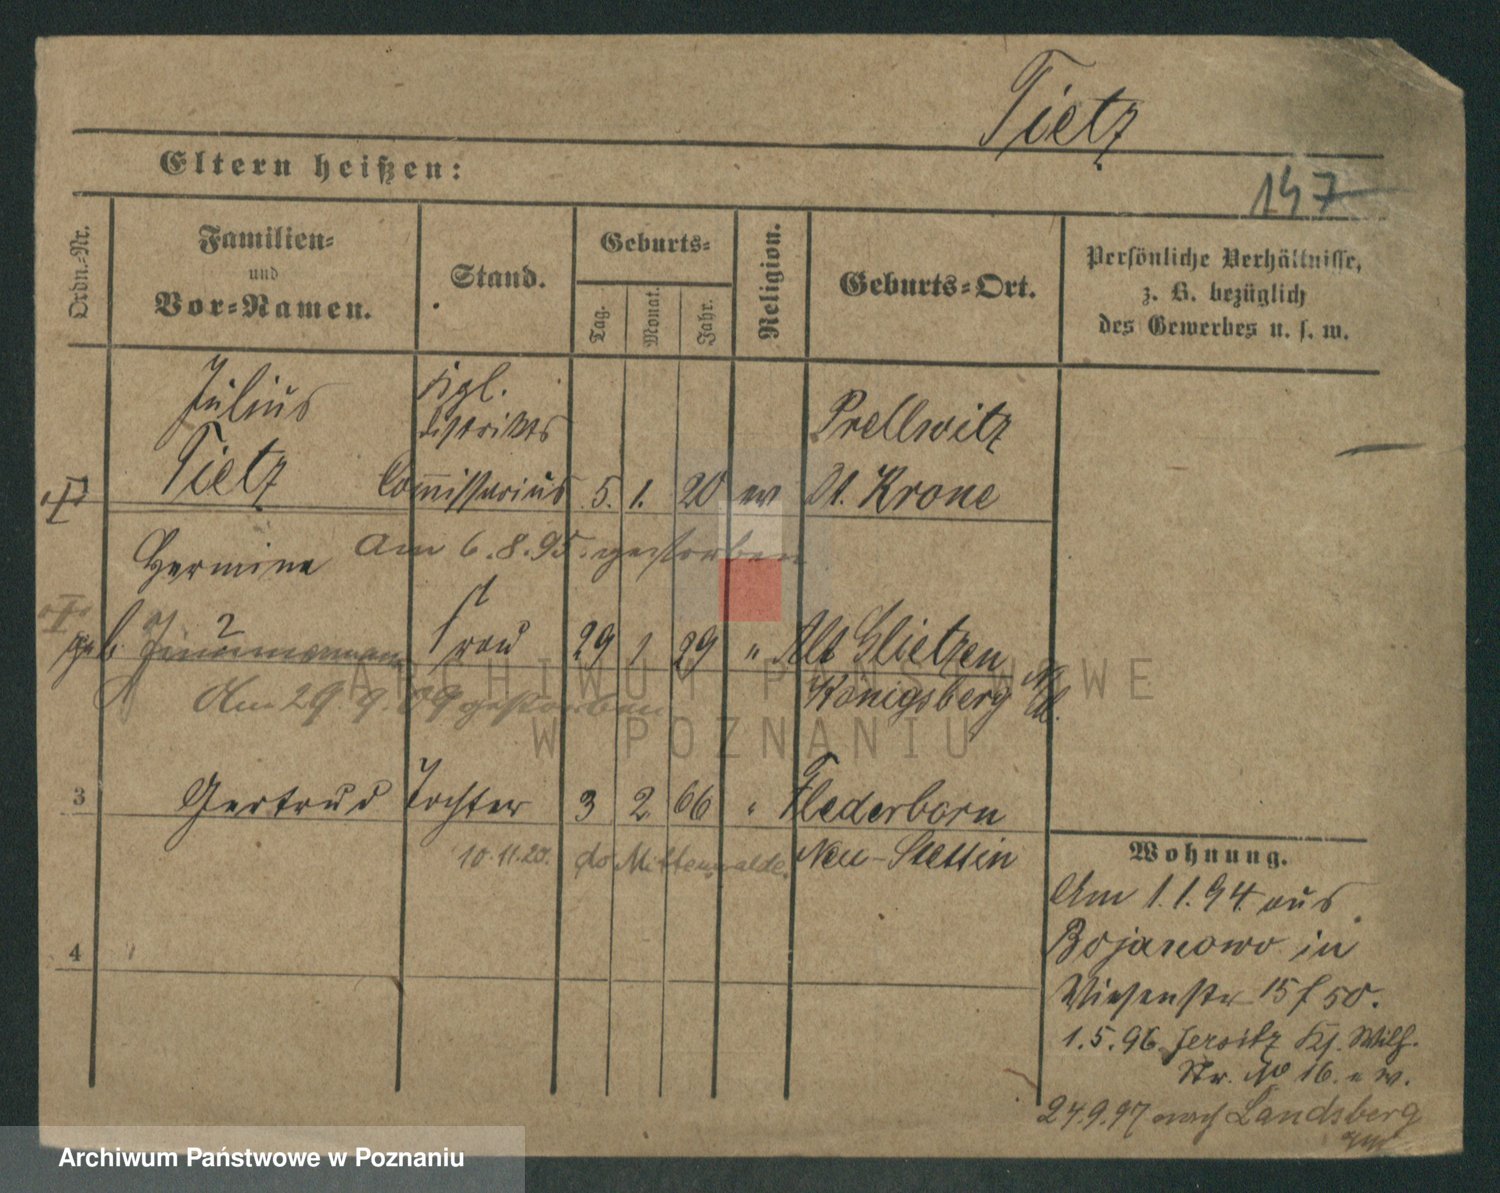 Tietz
Eltern heißen:
147
Ordn.-Nr.
Familien-
und
Vor-Namen.
Stand.
Geburts-
Tag.
Monat.
Jahr.
Religion.
Geburts-Ort.
Persönliche Verhältnisse,
z. B. bezüglich
des Gewerbes u. s. w.
Julius
Tietz
Kgl.
Distrikts
Commissarius
5. 1. 20 ev
Prellwitz
Dt. Krone
Am 6.8.95. gestorben
Hermine
geb.
Frau 29 1 29 " Alt Glietzen
Königsberg
Am 29 9. 09 gestorben
3 Gertrud Tochter 3 2 66 " Flederborn
Neu-Stettin
10.11.20. do Mittenwalde.
4
Wohnung.
Am 1.1.94 aus
Bojanowo in
Wiesenstr 15 f 50.
1.5.96. Jersitz Ks. Wilh.
Str. No 16. e w.
24.9.97 nach Landsberg
ARCHIWUM PAŃSTWOWE
W POZNANIU
Archiwum Państwowe w Poznaniu